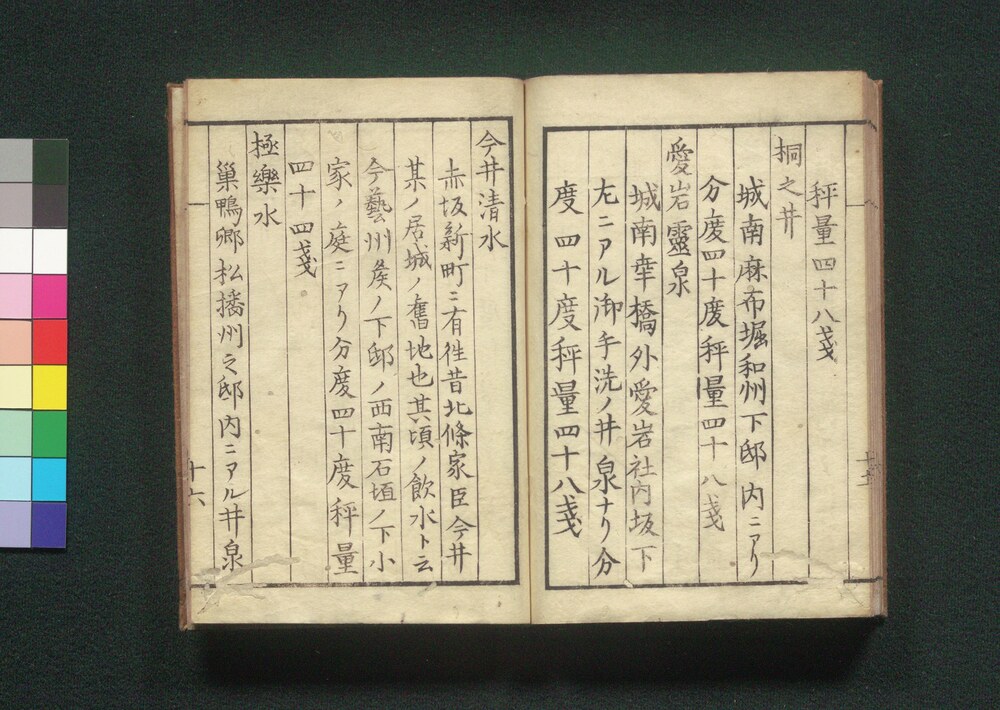 秤量四十八戔
桐之井
城南麻布堀和州下邸内ニアリ
分度四十度秤量四十八戔
愛岩靈泉
城南幸橋外愛岩社内坂下
左ニアル御手洗ノ井泉ナリ分
度四十度秤量四十八戔
今井清水
赤坂新町ニ有徃昔北條家臣今井
某ノ居城ノ舊地也其頃ノ飲水ト云
今藝州侯ノ下邸ノ西南石垣ノ下小
家ノ庭ニアリ分度四十度秤量
四十四戔
極樂水
巢鴨鄉松播州之邸内ニアル井泉
十六